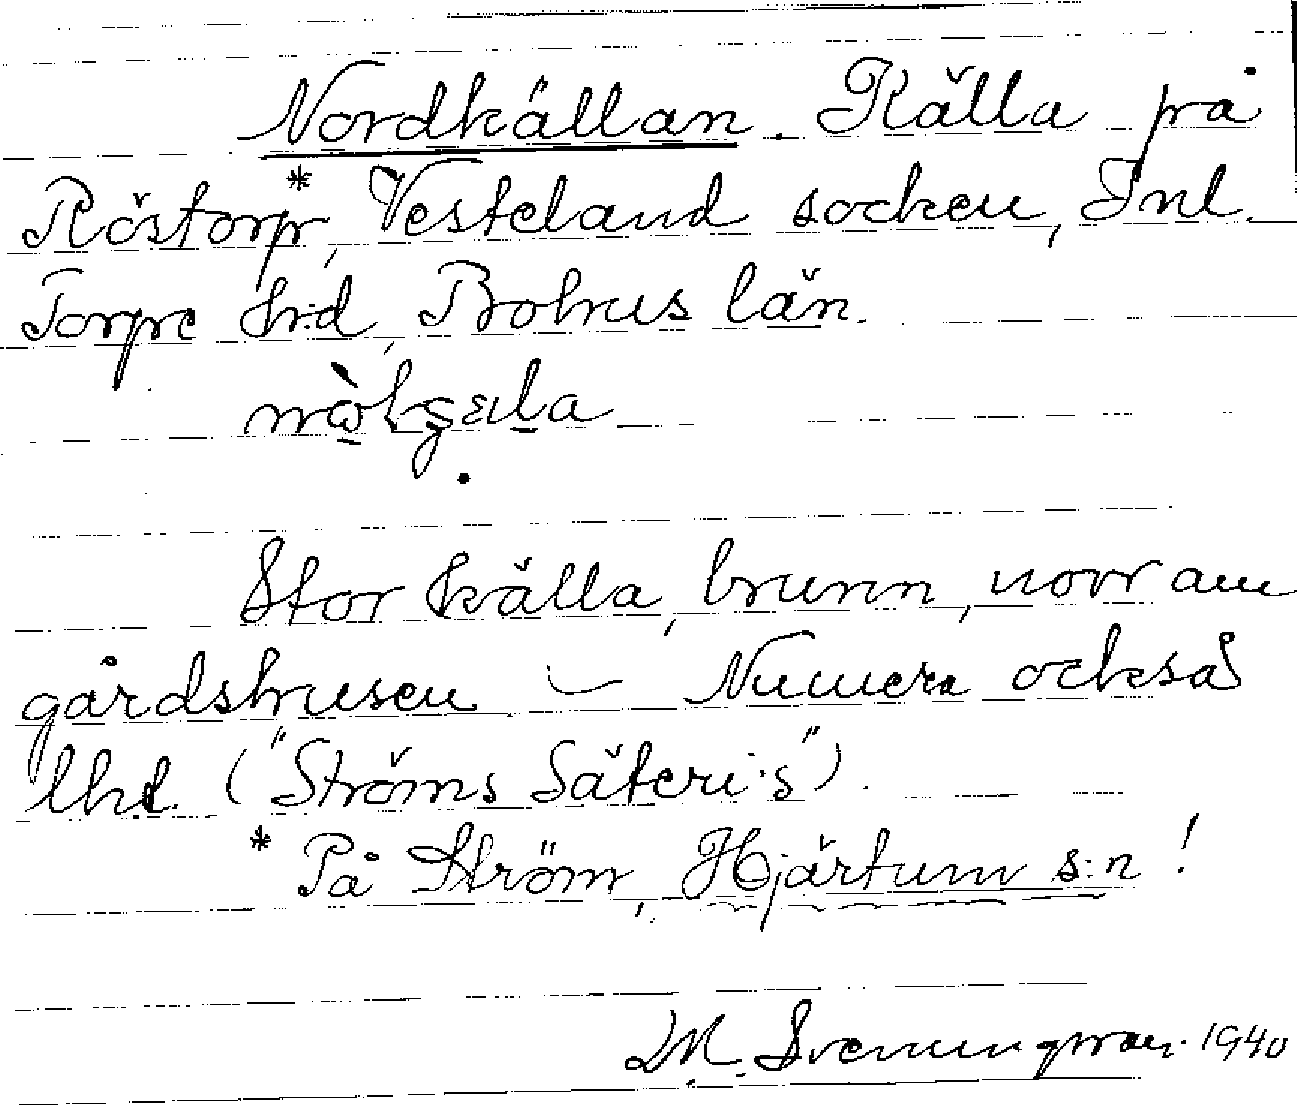 Nordkällan. Källa på
Röstorp*, Vesteland socken, Inl.
Torpe h:d, Bohus län.
Stor källa, brunn, norr om
gårdshusen — Numera också
lhl. ("Ströms Säteri:s").
* På Ström, Hjärtum s:n!
M. 1940